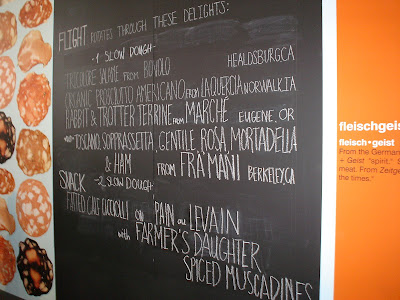 FLIGHT ROTATES THROUGH THESE DELIGHTS:
-1 SLOW DOUGH-
TRICOLORE SALAME FROM BOVOLO HEALDSBURG CA
ORGANIC PROSCIUTTO AMERICANO FROM LA QUERCIA NORWALK IA
RABBIT & TROTTER TERRINE FROM MARCHÉ EUGENE, OR
TOSCANO, SOPPRASSETTA, GENTILE, ROSA, MORTADELLA
& HAM FROM FRA'MANI BERKELEY CA
SNACK -2 SLOW DOUGH-
FATTED CALF CICCIOLI ON PAIN au LEVAIN
with FARMER'S DAUGHTER
SPICED MUSCADINES
fleischgeis
fleisch•geist
From the German
+ Geist "spirit."
meat. From Zeitge
the times."